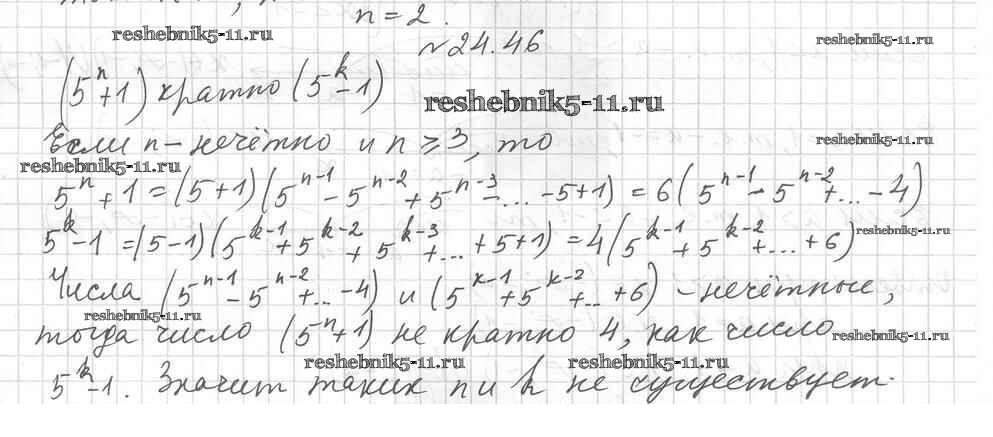 n = 2.
reshebnik5-11.ru
reshebnik5-11.ru
№24.46
(5^n + 1) кратно (5^k - 1)
reshebnik5-11.ru
Если n - нечётно и n ⩾ 3, то
reshebnik5-11.ru
reshebnik5-11.ru
5^n + 1 = (5+1)(5^{n-1} - 5^{n-2} + 5^{n-3} - ... - 5 + 1) = 6(5^{n-1} - 5^{n-2} + ... - 4)
5^k - 1 = (5-1)(5^{k-1} + 5^{k-2} + 5^{k-3} + ... + 5 + 1) = 4(5^{k-1} + 5^{k-2} + ... + 6)
reshebnik5-11.ru
Числа (5^{n-1} - 5^{n-2} + ... - 4) и (5^{k-1} + 5^{k-2} + ... + 6) - нечётные,
reshebnik5-11.ru
тогда число (5^n + 1) не кратно 4, как число
reshebnik5-11.ru
reshebnik5-11.ru
reshebnik5-11.ru
5^k - 1. Значит таких n и k не существует.